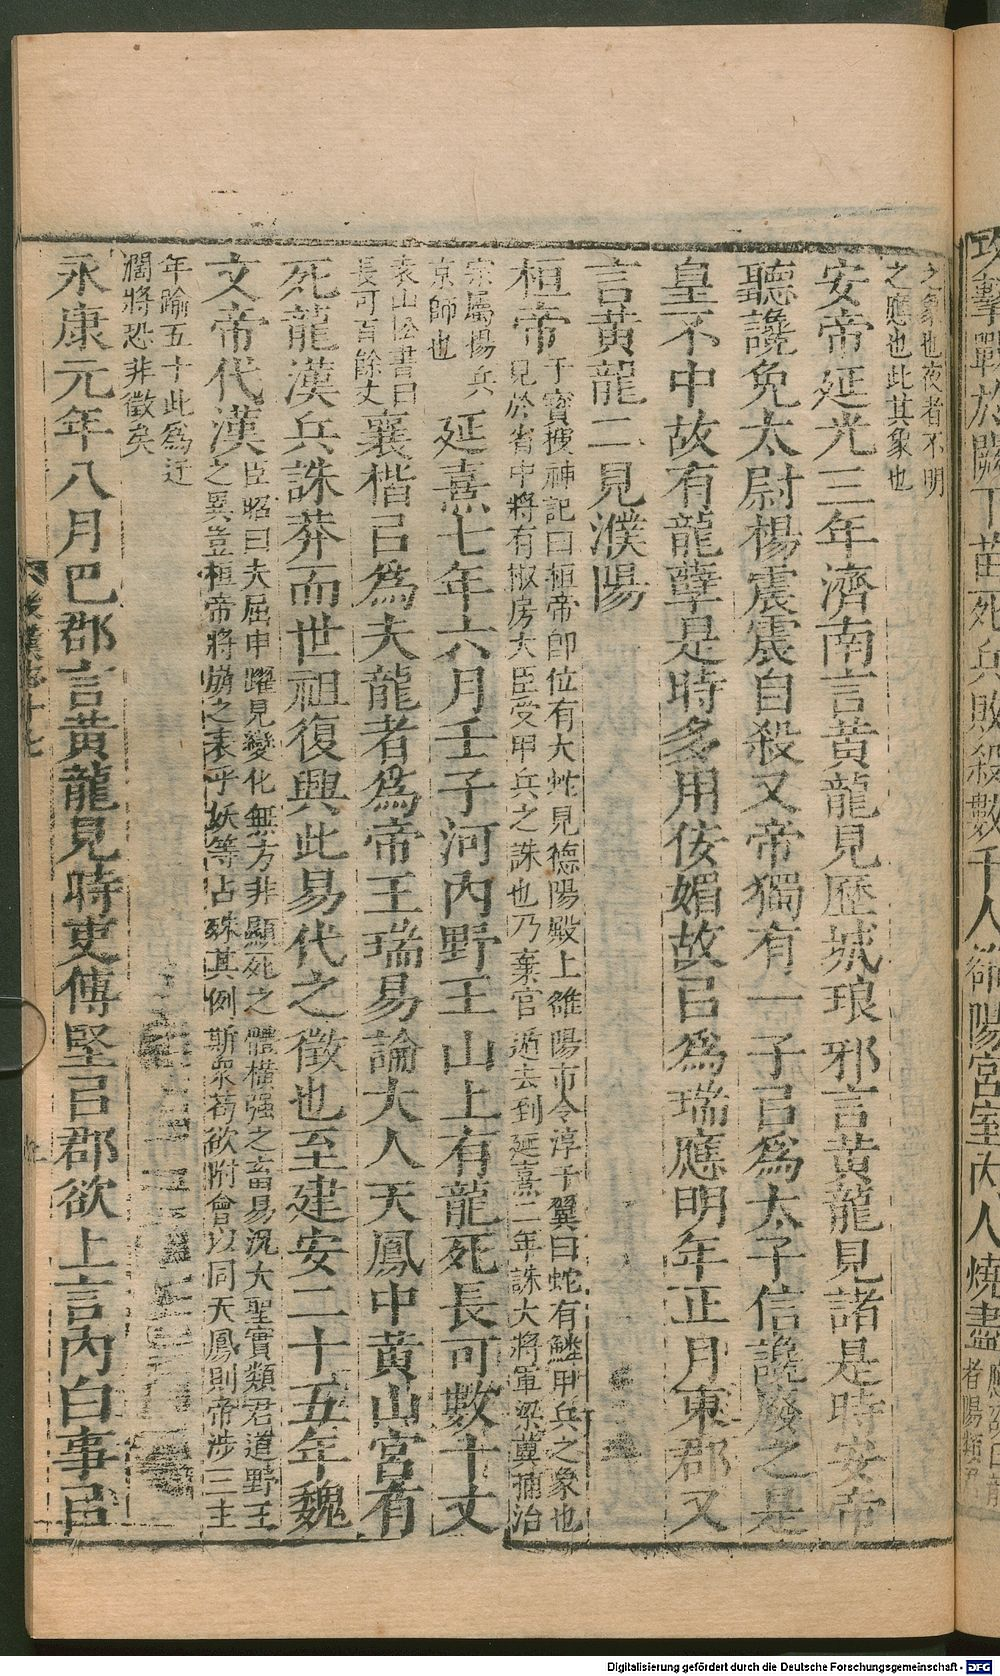 之象也夜者不明
之應也此其象也
安帝延光三年濟南言黃龍見歷城琅邪言黃龍見諸是時安帝
聽讒免太尉楊震震自殺又帝獨有一子㠯爲太子信讒廢之是
皇不中故有龍孽是時多用佞媚故㠯爲瑞應明年正月東郡又
言黃龍二見濮陽
桓帝
于寶搜神記曰桓帝卽位有大蛇見德陽殿上雒陽市令淳于翼曰蛇有鱗甲兵之象也
見於省中將有椒房大臣受甲兵之誅也乃棄官遁去到延熹二年誅大將軍梁冀捕治
宗屬揚兵
京師也
延熹七年六月壬子河內野王山上有龍死長可數十丈
袁山松書曰
長可百餘丈
襄楷㠯爲夫龍者爲帝王瑞易論大人天鳳中黃山宮有
死龍漢兵誅莽而世祖復興此易代之徵也至建安二十五年魏
文帝代漢
臣昭曰夫屈申躍見變化無方非顯死之體橫强之畜易況大聖實類君道野王
之異豈桓帝將崩之表乎妖等占殊其例斯衆苟欲附會以同天鳳則帝涉三主
年踰五十此爲迂
闊將恐非徵矣
永康元年八月巴郡言黃龍見時吏傅堅㠯郡欲上言內白事㠯
後漢志十七
攻擊戰於闕下苗死兵敗殺數千人雒陽宮室內人燒盡
Digitalisierung gefördert durch die Deutsche Forschungsgemeinschaft - DFG